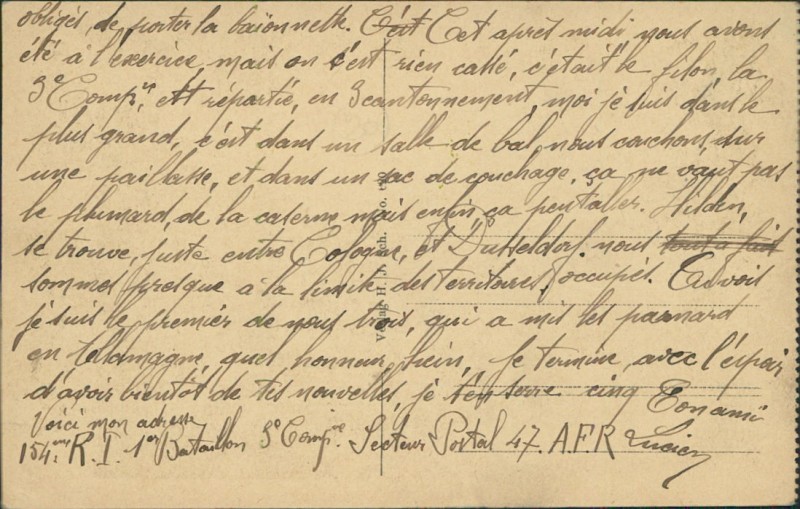 obligés, de porter la baïonnette. C'est Cet après midi nous avons
été a l'exercice, mais on s'est rien cassé, c'était le filon, la
3e Compie, est répartie, en 3 cantonnement, moi je suis dans le
plus grand, c'est dans un salle de bal, nous couchons, sur
une paillasse, et dans un sac de couchage, ça ne vaut pas
le plumard, de la caserne mais enfin ça peut aller. Hilden,
se trouve, juste entre Cologne, et Dusseldorf. nous tout a fait
sommes presque a la limite des territoires, occupés. Tu vois
je suis le premier de nous trois, qui a mis les panard
en Allemagne, quel honneur, hein, Je termine, avec l'espoir
d'avoir bientôt de tes nouvelles, je t'en serre cinq Ton ami
Voici mon adresse
154eme R.I. 1er Bataillon 3e Compie. Secteur Postal 47. A.F.R Lucien
Verlag H. J.
No.